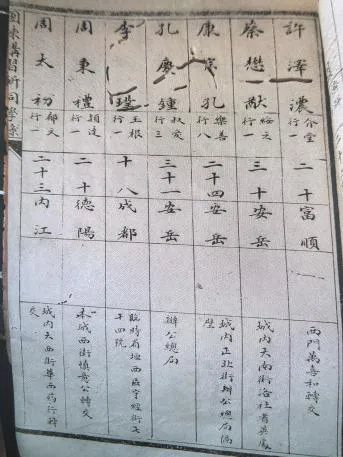 許澤濃 介堂 行一 二十 富順 西門萬壽和轉交
蔡懋猷 行一 三十 安岳 城內大南街
康 孔 樂善 行八 二十四 安岳 城內正北街辦公總局
孔廣鍾 叔爱 行三 三十一 安岳 辦公總局
李 玉根 行一 十八 成都 臨時省垣西 字經街 十四號
周東禮 行一 二十 德陽 本城西街慎意公轉交
周太初 郁文 行一 二十三 內江 城內大西街華西药行轉交
講習所同學錄